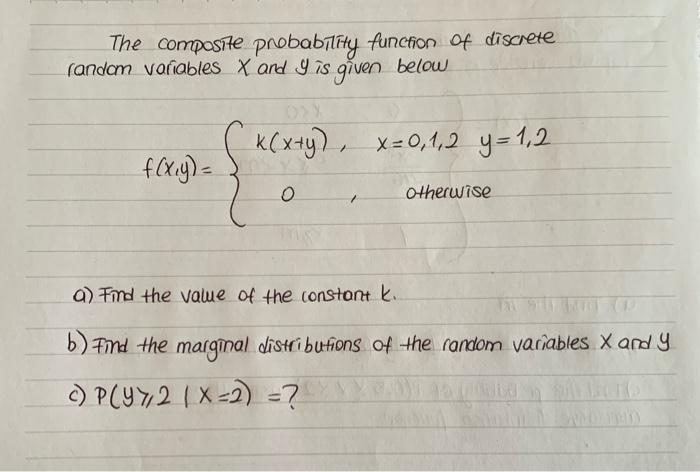 The composite probability function of discrete
random variables X and y is given below
f(x,y) = { k(x+y), x=0,1,2 y=1,2
0 , otherwise
a) Find the value of the constant k.
b) Find the marginal distributions of the random variables X and y
c) P(y⩾2 | X=2) = ?